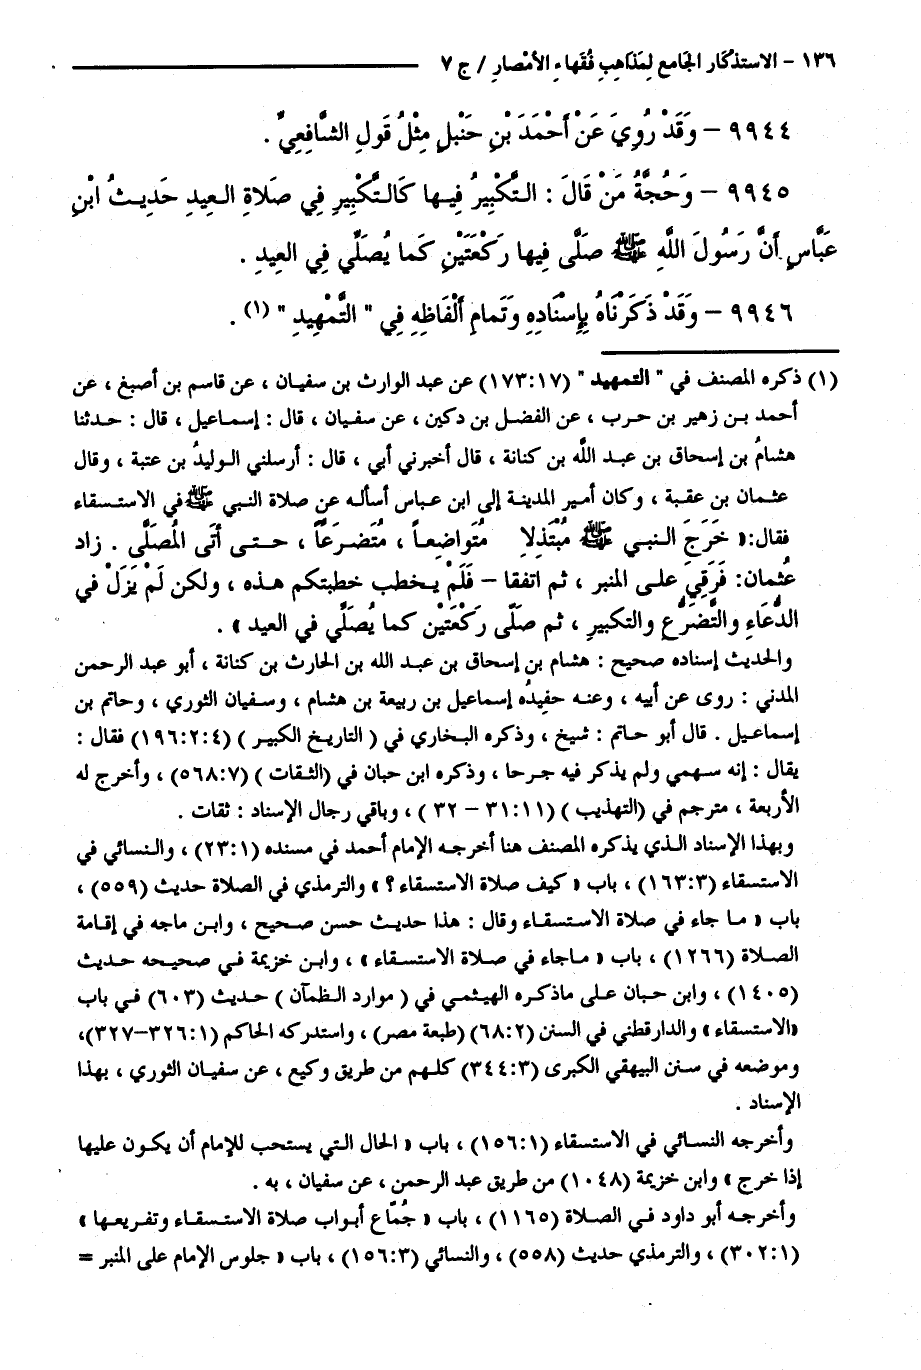 ١٣٦ – الاستذكار الجامع لِمَذاهِبِ فُقَهاءِ الأمْصارِ / ج ٧
٩٩٤٤ – وَقَدْ رُوِيَ عَنْ أَحْمَدَ بْنِ حَنْبَلٍ مِثْلُ قَولِ الشَّافِعِيِّ .
٩٩٤٥ – وَحُجَّةُ مَنْ قَالَ : التَّكْبِيرُ فِيها كَالتَّكْبِيرِ فِي صَلاةِ العِيدِ حَدِيثُ ابْنِ
عَبَّاسٍ أَنَّ رَسُولَ اللَّهِ ﷺ صَلَّى فِيها رَكْعَتَيْنِ كَما يُصَلِّي فِي العِيدِ .
٩٩٤٦ – وَقَدْ ذَكَرْنَاهُ بِإِسْنَادِهِ وَتَمامِ أَلْفَاظِهِ فِي " التَّمْهِيدِ " (١) .
(١) ذكره المصنف في " التمهيد " (١٧٣:١٧) عن عبد الوارث بن سفيان ، عن قاسم بن أصبغ ، عن
أحمد بن زهير بن حرب ، عن الفضل بن دكين ، عن سفيان ، قال : إسماعيل ، قال : حدثنا
هشامُ بن إسحاق بن عبد اللَّه بن كنانة ، قال أخبرني أبي ، قال : أرسلني الوليدُ بن عتبة ، وقال
عثمان بن عقبة ، وكان أمير المدينة إلى ابن عباس أسأله عن صلاة النبي ﷺ في الاستسقاء
فقال:« خَرَجَ النبي ﷺ مبْتَذِلا مُتَواضِعاً ، مُتَضرَعاً ، حتى أَتَى المُصَلَّى . زاد
عُثمان: فَرَقِيَ على المنبر ، ثم اتفقا – فَلَمْ يخطب خطبتكم هذه ، ولكن لَمْ يَزَلْ في
الدُّعَاءِ والتَّضَرُّعِ والتكبير ، ثم صلَّى رَكْعَتَيْن كما يُصَلَّي في العيد » .
والحديث إسناده صحيح : هشام بن إسحاق بن عبد الله بن الحارث بن كنانة ، أبو عبد الرحمن
المدني : روى عن أبيه ، وعنه حفيدُه إسماعيل بن ربيعة بن هشام ، وسفيان الثوري ، وحاتم بن
إسماعيل . قال أبو حاتم : شيخ ، وذكره البخاري في ( التاريخ الكبير ) (١٩٦:٢:٤) فقال :
يقال : إنه سهمي ولم يذكر فيه جرحا ، وذكره ابن حبان في (الثقات ) (٥٦٨:٧) ، وأخرج له
الأربعة ، مترجم في (التهذيب ) (٣١:١١ – ٣٢ ) ، وباقي رجال الإسناد : ثقات .
وبهذا الإسناد الذي يذكره المصنف هنا أخرجه الإمام أحمد في مسنده (٢٣:١) ، والنسائي في
الاستسقاء (١٦٣:٣) ، باب « كيف صلاة الاستسقاء ؟ » والترمذي في الصلاة حديث (٥٥٩) ،
باب « ما جاء في صلاة الاستسقاء وقال : هذا حديث حسن صحيح ، وابن ماجه في إقامة
الصلاة (١٢٦٦) ، باب « ماجاء في صلاة الاستسقاء » ، وابن خزيمة في صحيحه حديث
(١٤٠٥) ، وابن حبان على ماذكره الهيثمي في ( موارد الظمآن ) حديث (٦٠٣) في باب
«الاستسقاء » والدارقطني في السنن (٦٨:٢) (طبعة مصر) ، واستدركه الحاكم (٣٢٦:١–٣٢٧)،
وموضعه في سنن البيهقي الكبرى (٣٤٤:٣) كلهم من طريق وكيع ، عن سفيان الثوري ، بهذا
الإسناد .
وأخرجه النسائي في الاستسقاء (١٥٦:١) ، باب « الحال التي يستحب للإمام أن يكون عليها
إذا خرج » وابن خزيمة (١٠٤٨) من طريق عبد الرحمن ، عن سفيان ، به .
وأخرجه أبو داود في الصلاة (١١٦٥) ، باب « جُمَّاع أبواب صلاة الاستسقاء وتفريعها »
(٣٠٢:١) ، والترمذي حديث (٥٥٨) ، والنسائي (١٥٦:٣) ، باب « جلوس الإمام على المنبر =